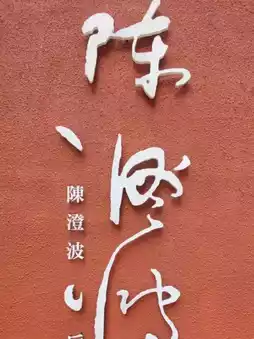 陳澄波
陳澄波